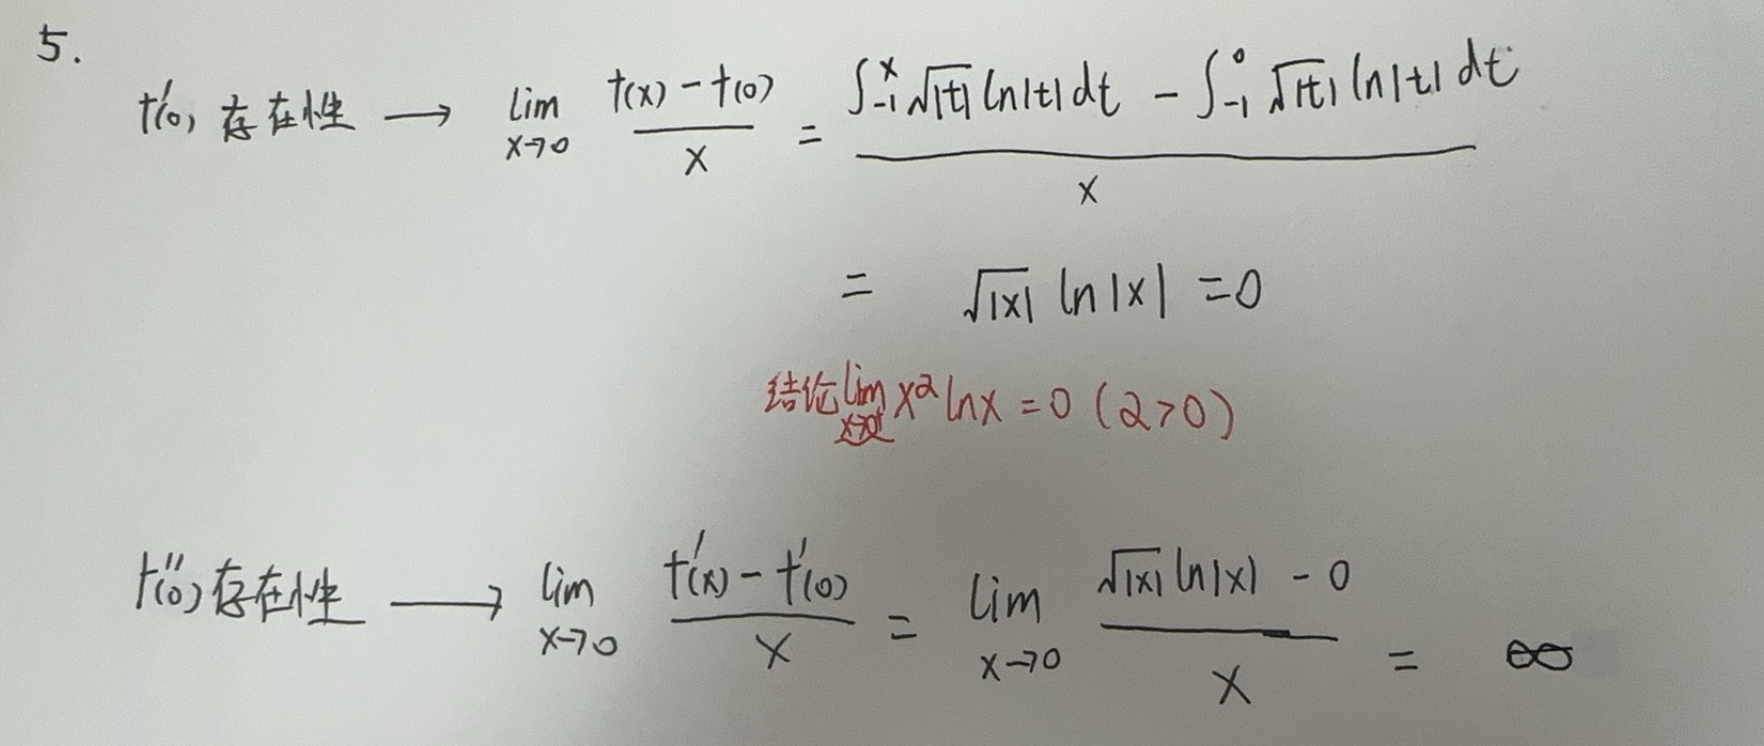 5.
f'(0) 存在性 → lim x→0 (f(x) - f(0))/x = (∫₋₁ˣ √|t| ln|t| dt - ∫₋₁⁰ √|t| ln|t| dt)/x
= √|x| ln|x| = 0
结论 lim x→0⁺ x^α ln x = 0 (α>0)
f''(0) 存在性 → lim x→0 (f'(x) - f'(0))/x = lim x→0 (√|x| ln|x| - 0)/x = ∞